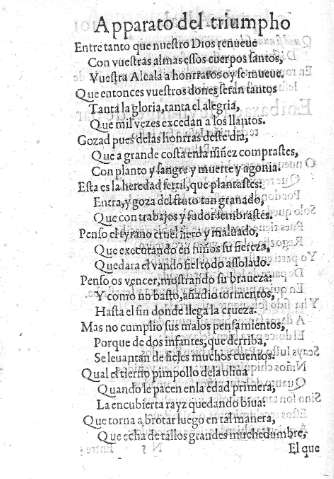 Apparato del triumpho
Entre tanto que nuestro Dios renueue
Con vuestras almas essos cuerpos santos,
Vuestra Alcala a honrraros oy se mueue.
Que entonces vuestros dones seran tantos
Tanta la gloria, tanta el alegria,
Que mil vezes excedan a los llantos.
Gozad pues de las honrras deste dia,
Que a grande costa en la niñez comprastes,
Con planto y sangre y muerte y agonia.
Esta es la heredad fertil, que plantastes:
Entra, y goza del fruto tan granado,
Que con trabajos y sudor sembrastes.
Penso el tyrano cruel fiero y maluado,
Que executando en niños su fiereza,
Quedara el vando fiel todo assolado.
Penso os vencer, mostrando su braueza:
Y como no basto, añadio tormentos,
Hasta el fin donde llega la crueza.
Mas no cumplio sus malos pensamientos,
Porque de dos infantes, que derriba,
Se leuantan de fieles muchos cuentos.
Qual el tierno pimpollo de la oliua
Quando le pacen en la edad primera,
La encubierta rayz quedando biua:
Que torna a brotar luego en tal manera,
Que echa de tallos grandes muchedumbre,
El que